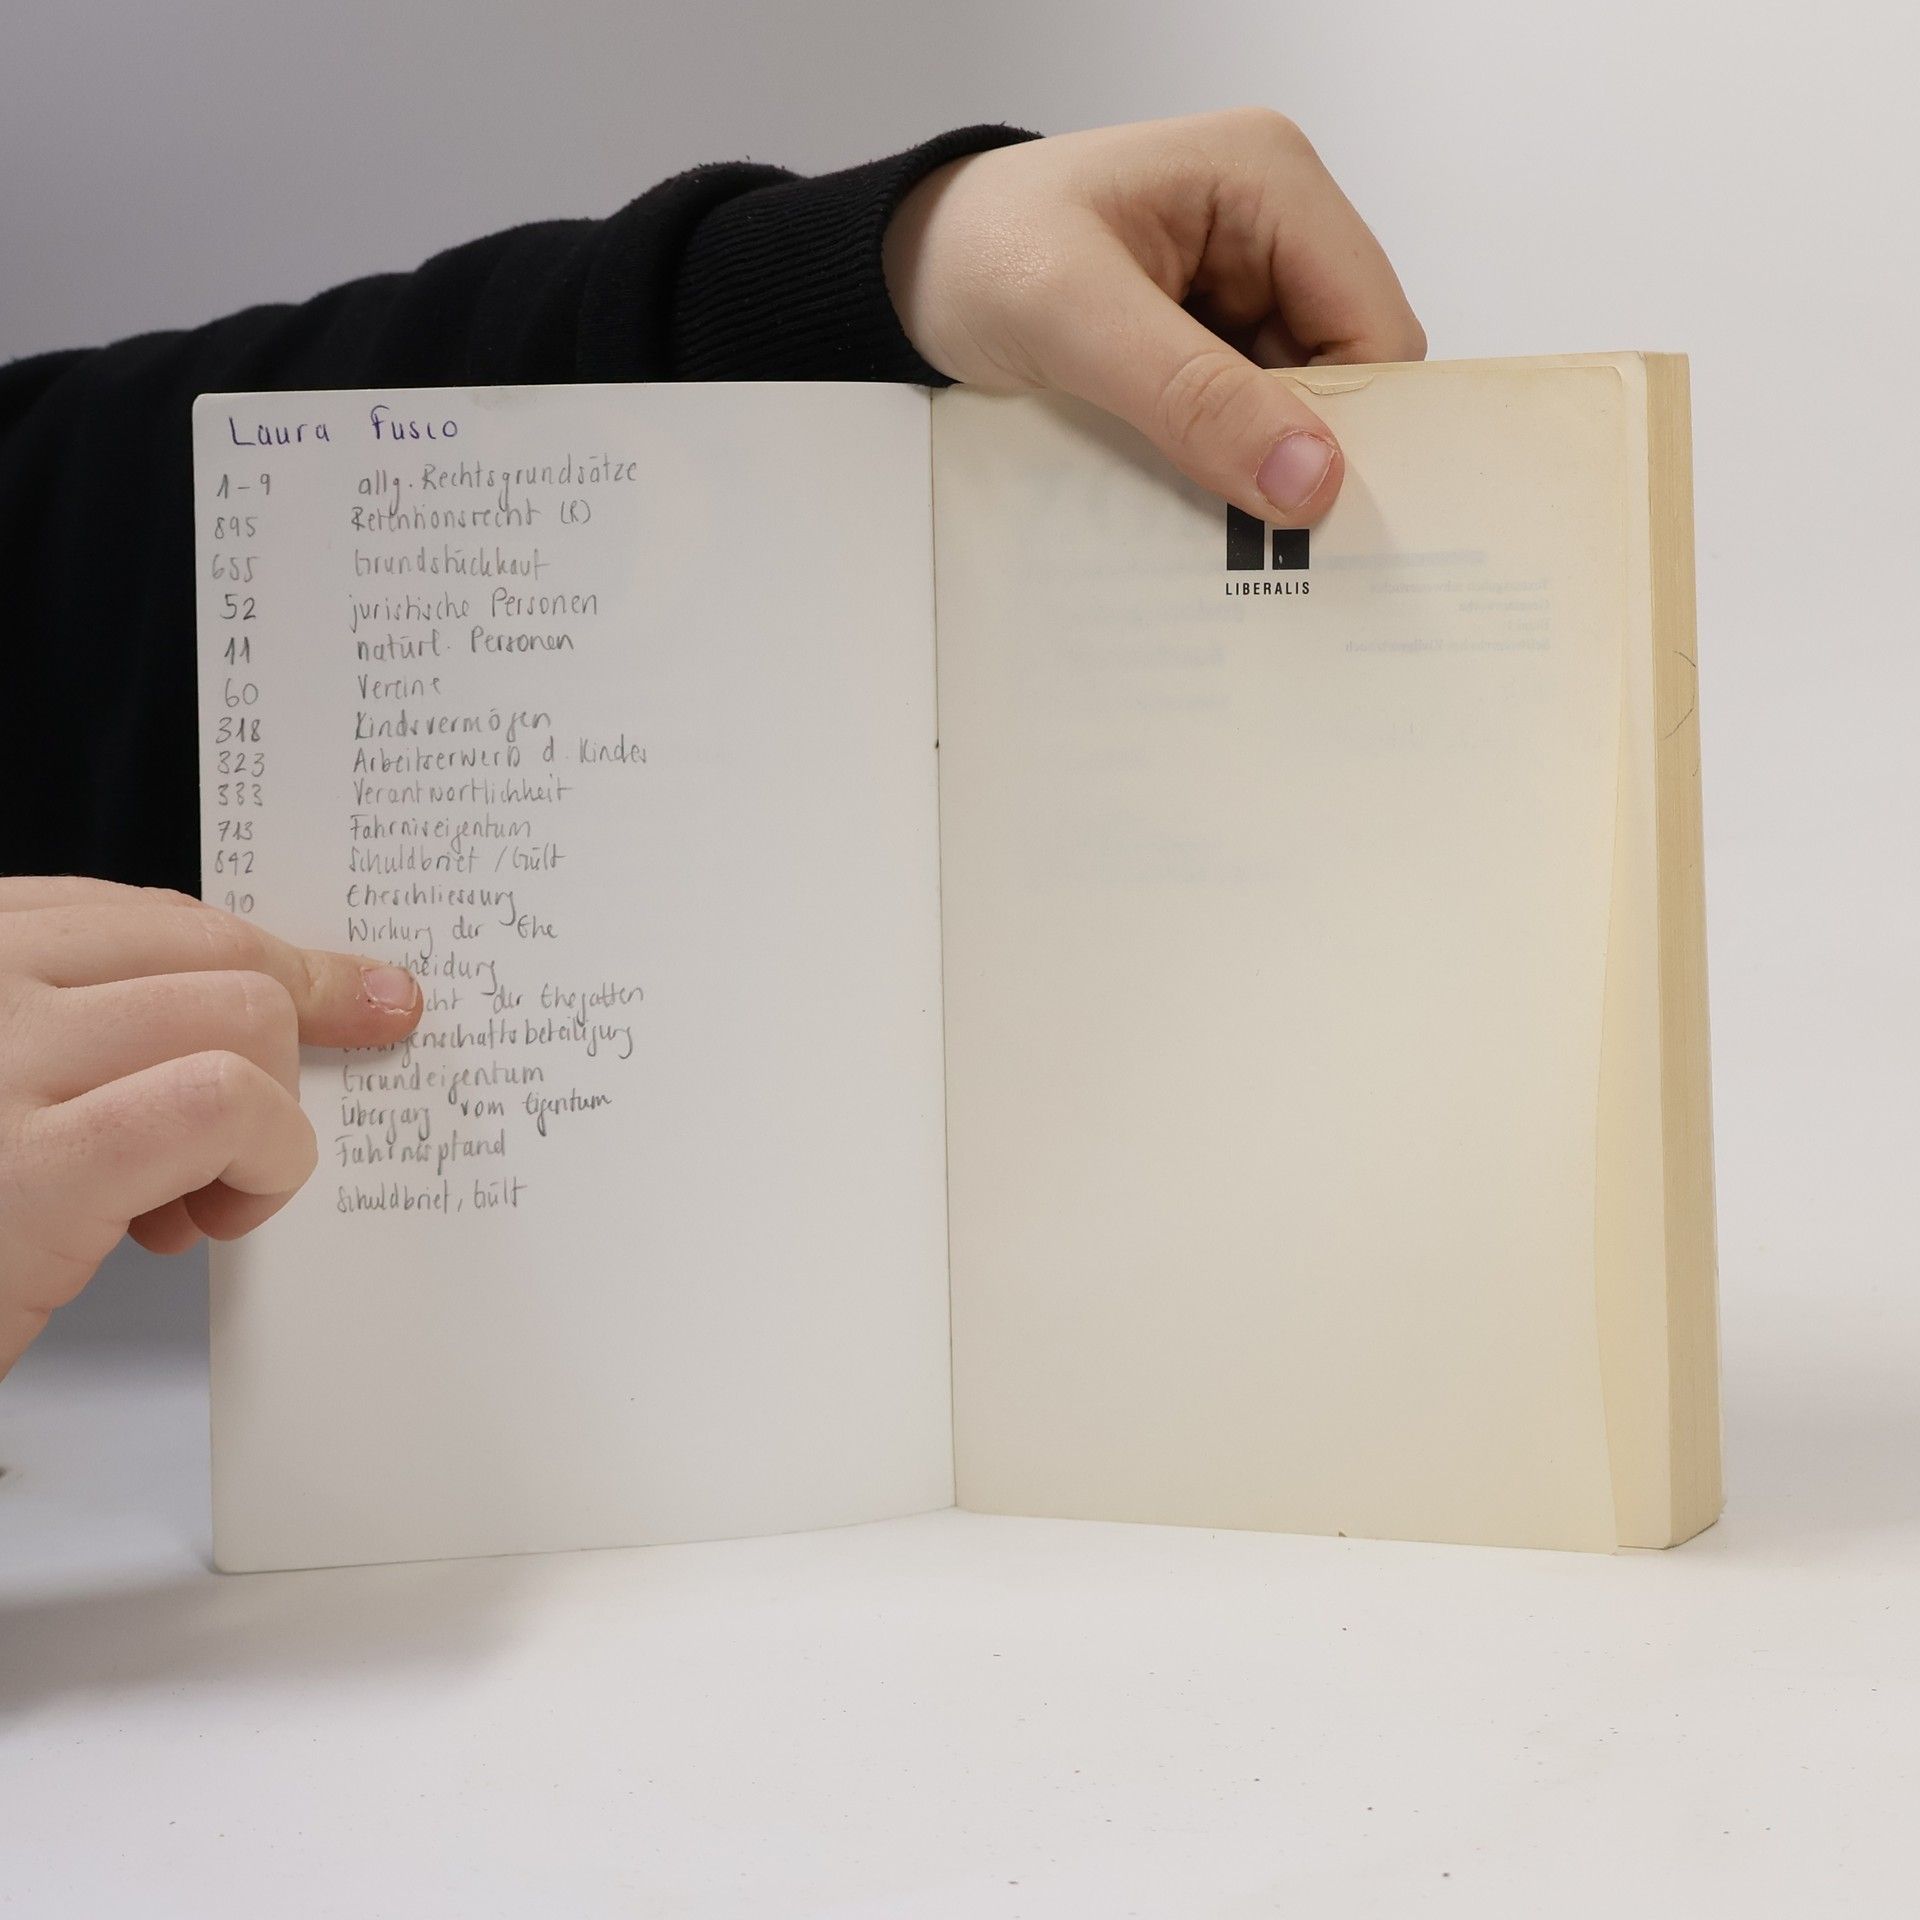 Laura Fusco
1-9 allg. Rechtsgrundsätze
895 Retentionsrecht (R)
655 Grundstückkauf
52 juristische Personen
11 natürl. Personen
60 Vereine
318 Kindsvermögen
323 Arbeitserwerb d. Kindes
333 Verantwortlichkeit
713 Fahrniseigentum
842 Schuldbrief / Gült
90 Eheschliessung
Wirkung der Ehe
der Ehegatten
Grundeigentum
Übergang vom Eigentum
Fahrnispfand
Schuldbrief, Gült
LIBERALIS